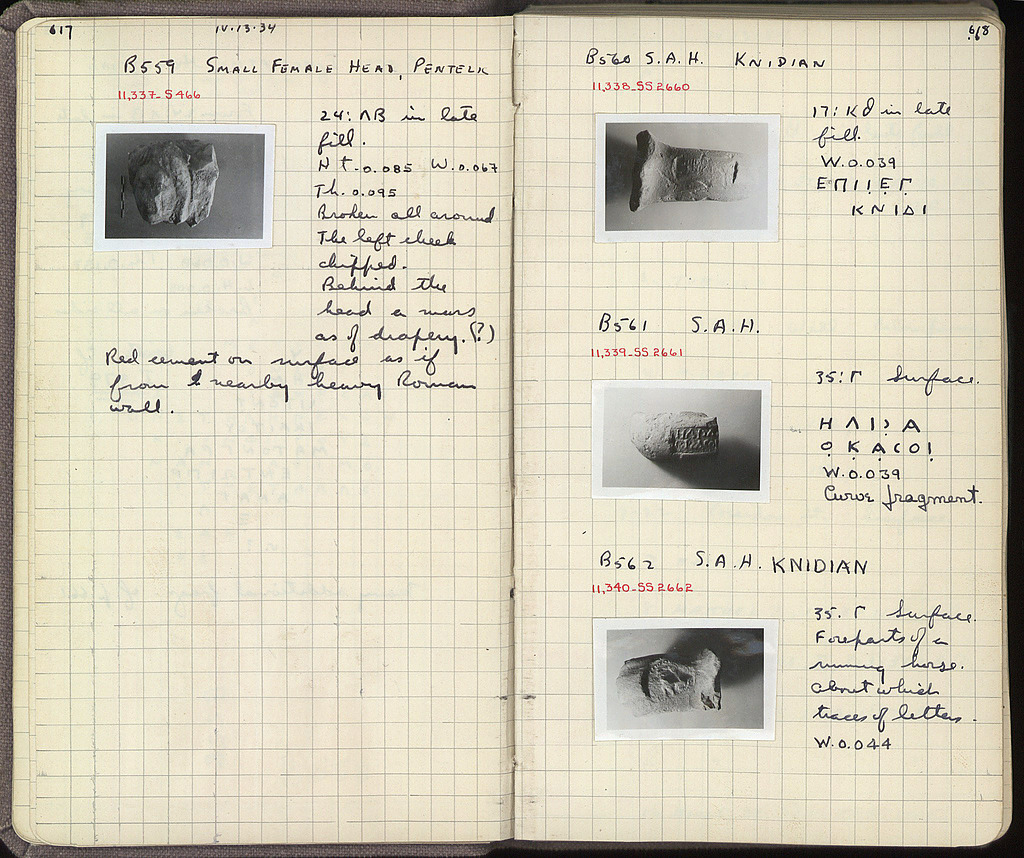 617
IV.13.34
B559 SMALL FEMALE HEAD, PENTELIC
11,337-S 466
24: ΛB in late
fill.
Ht. 0.085 W. 0.067
Th. 0.095
Broken all around
The left cheek
chipped.
Behind the
head a mass
as of drapery. (?)
Red cement on surface as if
from nearby heavy Roman
wall.
618
B560 S.A.H. KNIDIAN
11,338-SS 2660
17: K in late
fill.
W. 0.039
ΕΠΙ
ΚΝΙΔΙ
B561 S.A.H.
11,339-SS 2661
35: Γ Surface.
W. 0.039
Curve fragment.
B562 S.A.H. KNIDIAN
11,340-SS 2662
35. Γ Surface.
Foreparts of a
running horse.
about which
traces of letters.
W. 0.044